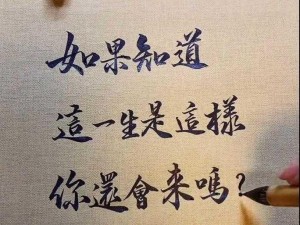 如果知道
這一生是這樣
你還會来嗎？